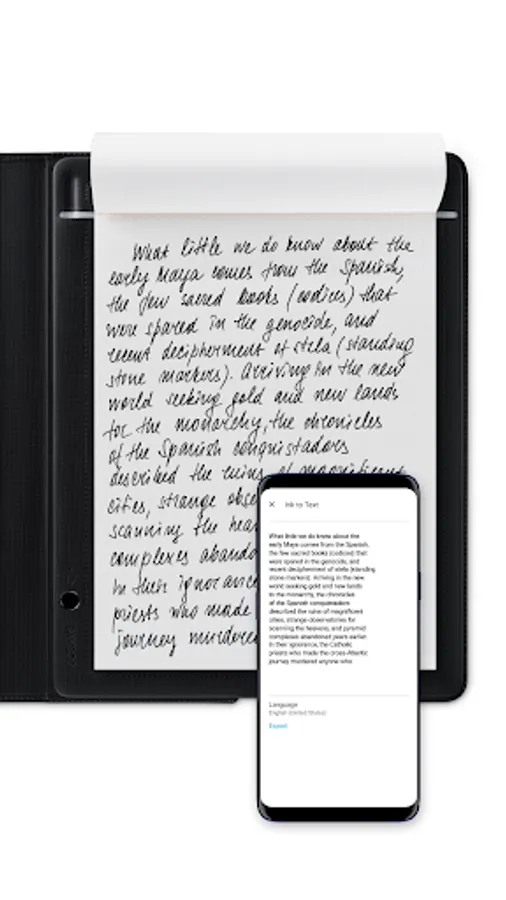 What little we do know about the
early Maya comes from the Spanish,
the few sacred books (codices) that
were spared in the genocide, and
recent decipherment of stela (standing
stone markers). Arriving in the new
world seeking gold and new lands
for the monarchy, the chronicles
of the Spanish conquistadors
described the ruins of magnificent
cities, strange obse
scanning the hea
complexes abando
in their ignorance
priests who made
journey murdered
Ink to Text
What little we do know about the
early Maya comes from the Spanish,
the few sacred books (codices) that
were spared in the genocide, and
recent decipherment of stela (standing
stone markers). Arriving in the new
world seeking gold and new lands
for the monarchy, the chronicles
of the Spanish conquistadors
described the ruins of magnificent
cities, strange observatories for
scanning the heavens, and pyramid
complexes abandoned years earlier.
In their ignorance, the Catholic
priests who made the cross-Atlantic
journey murdered anyone who
Language
English (United States)
Export